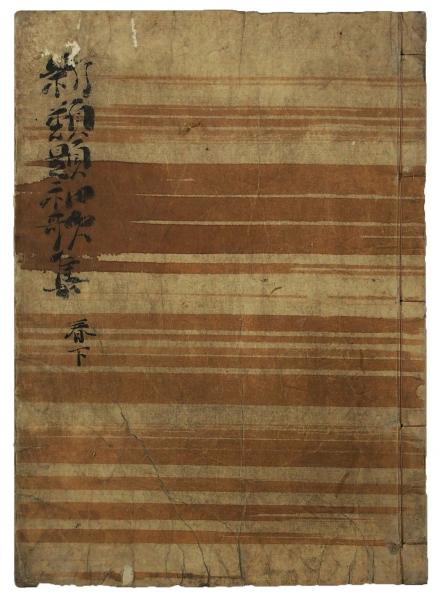 新類題和歌集
春下